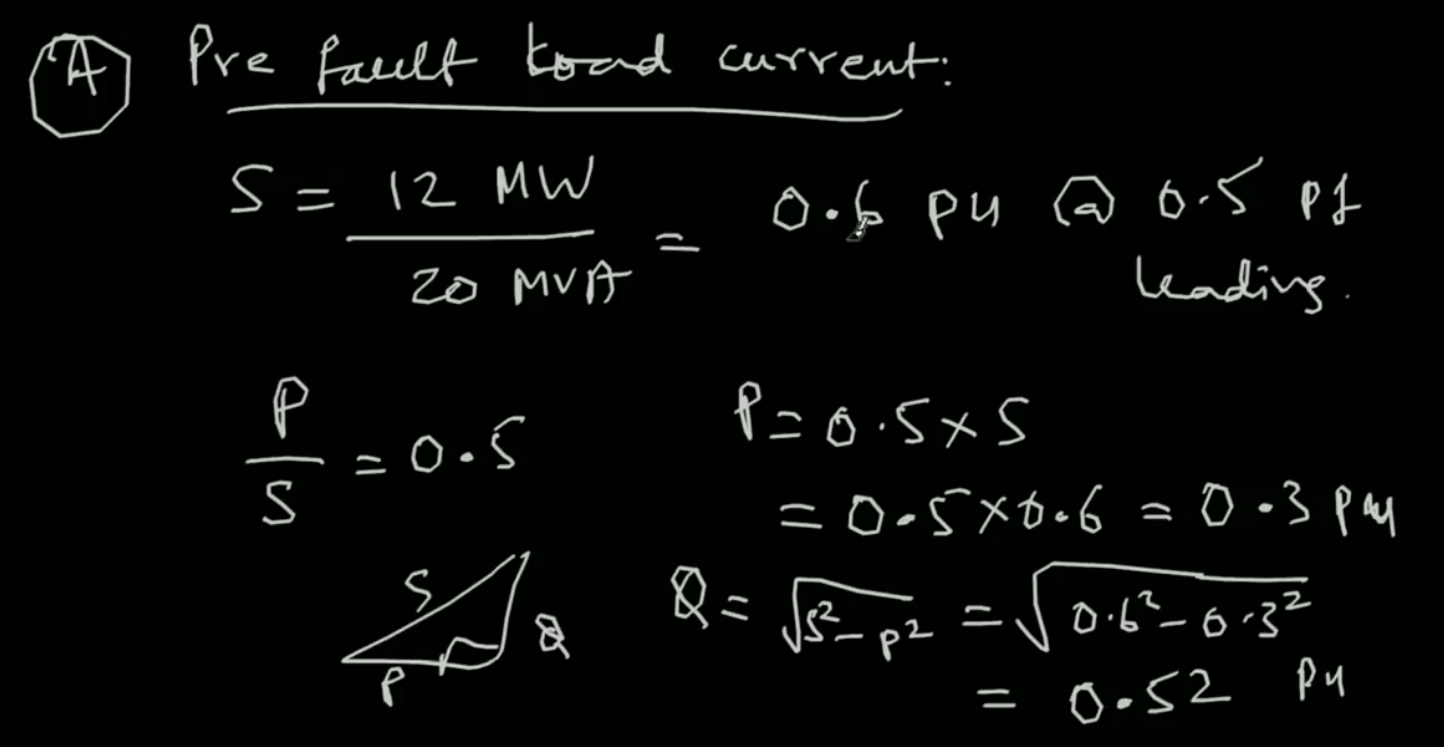 A Pre fault load current:
S = 12 MW / 20 MVA = 0.6 pu @ 0.5 pf
leading.
P / S = 0.5
P = 0.5 × S
= 0.5 × 0.6 = 0.3 pu
S
P
Q
Q = √S² - P² = √0.6² - 0.3²
= 0.52 pu